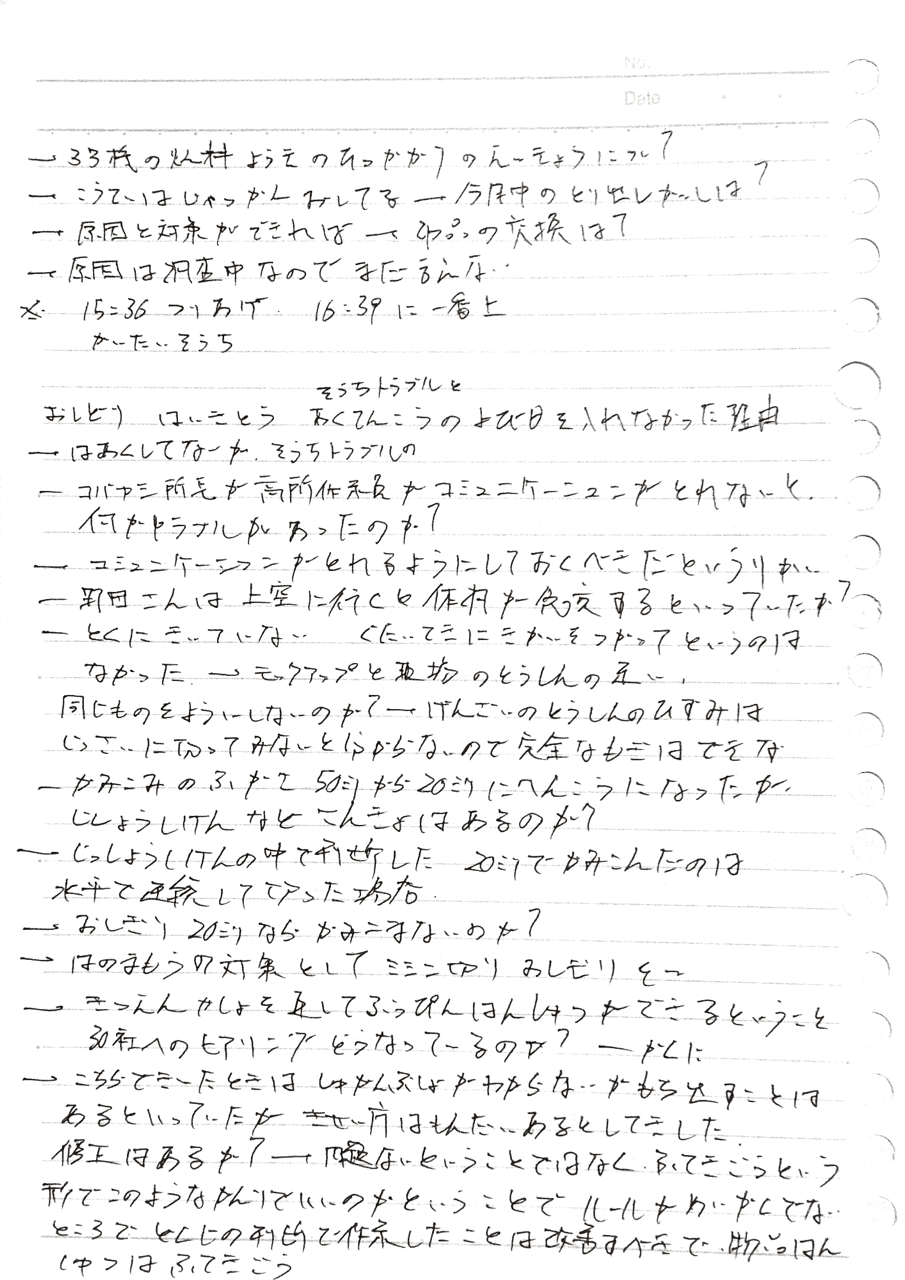 No.
Date
→ 33機の燃料ようその ひっかかり の えいきょうについて?
→ こうていはじゃっかん おしてる → 今年中のとり出しかいしは?
→ 原因と対策ができれば → 部品の交換は?
→ 原因は調査中なので まだ言えない
※ 15:36 つりあげ 16:39 に一番上
かいたいそうち
そうちトラブルと
おしどり はいきとう あくてんこうのよび日を入れなかった理由
→ はあくしてないが、そうちトラブルの
→ コバヤシ所長が高所作業員がコミュニケーションがとれないと、
何かトラブルがあったのか?
→ コミュニケーションがとれるようにしておくべきだというりかい
→ 野田さんは 上空に行くと 体材が するといっていたが?
→ とくにきいていない ぐたいてきにきかいをつかってというのは
なかった → モックアップと現物のとうしんの違い、
同じものをよういしないのか? → げんざいのとうしんのひずみは
じっさいに切ってみないと分からないので完全なものはできな
→ かみこみのふかさ 50ミリから20ミリにへんこうになったが、
じっしょうしけんなどこんきょはあるのか?
→ じっしょうしけんの中で判断した 20ミリでかみこんだのは
水平で連続してやった場合
→ おしぎり 20ミリならかみこまないのか?
→ はのまもうの対策として ミシン切り おしぎり を
→ きつえんかしょを通してぶっぴんはんしゅつができるということ
30社へのヒアリングどうなっているのか? → かくに
→ こちらできいたときは しゅかんぶしょがわからないがもち出すことは
あるといっていたが きせい庁はもんだいあるとしてきした
修正はあるか? → 問題ないということではなく、ふてきごうという
形でこのようなかんりでいいのかということで ルールがめいかくでない
ところで とくじの判断で作業したことは改善すべきで、物品はん
しゅつは ふてきごう